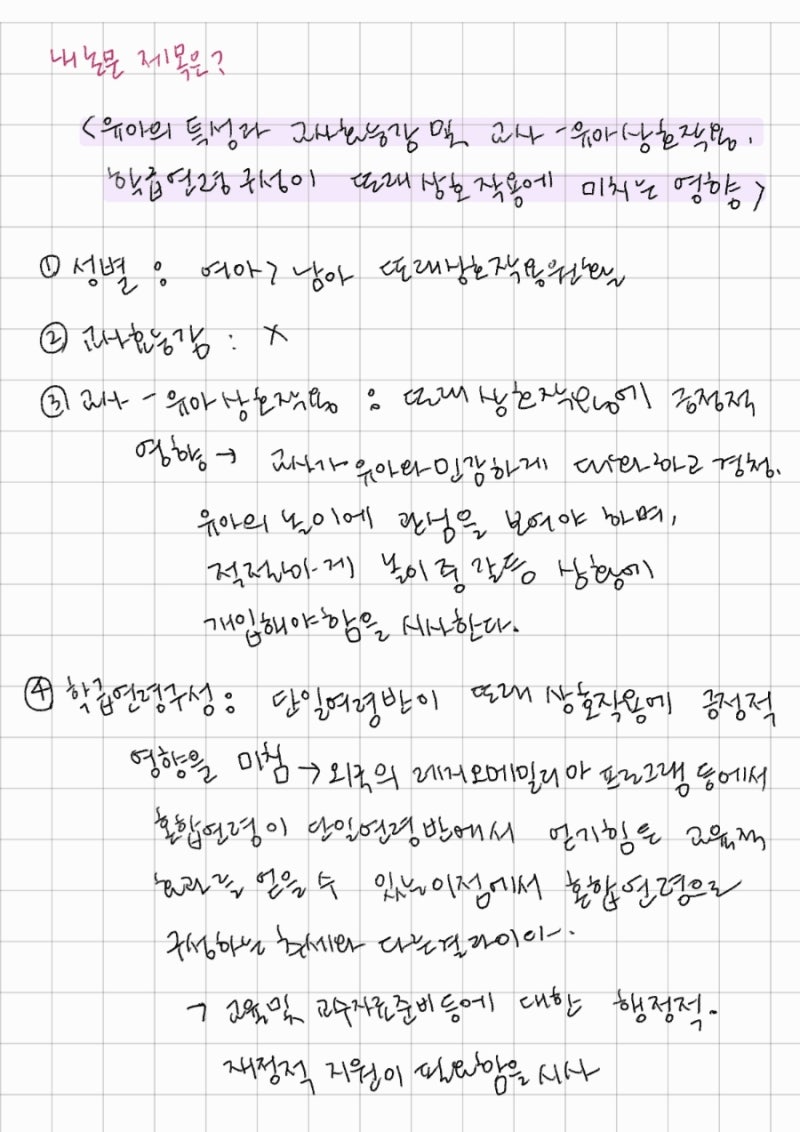 내 논문 제목은?
<유아의 특성과 교사효능감 및 교사-유아상호작용,
학급연령구성이 또래상호작용에 미치는 영향>
① 성별 : 여아 > 남아 또래상호작용원활
② 교사효능감 : X
③ 교사-유아상호작용 : 또래상호작용에 긍정적
영향 → 교사가 유아와 민감하게 대화하고 경청.
유아의 놀이에 관심을 보여야 하며,
적절하게 놀이 중 갈등 상황에
개입해야함을 시사한다.
④ 학급연령구성 : 단일연령반이 또래상호작용에 긍정적
영향을 미침 → 외국의 레지오에밀리아 프로그램 등에서
혼합연령이 단일연령반에서 얻기힘든 교육적
효과를 얻을 수 있는 이점에서 혼합연령으로
구성하는 추세와 다른결과이다.
ㄱ 교육및 교수자료준비등에 대한 행정적.
재정적 지원이 필요함을 시사